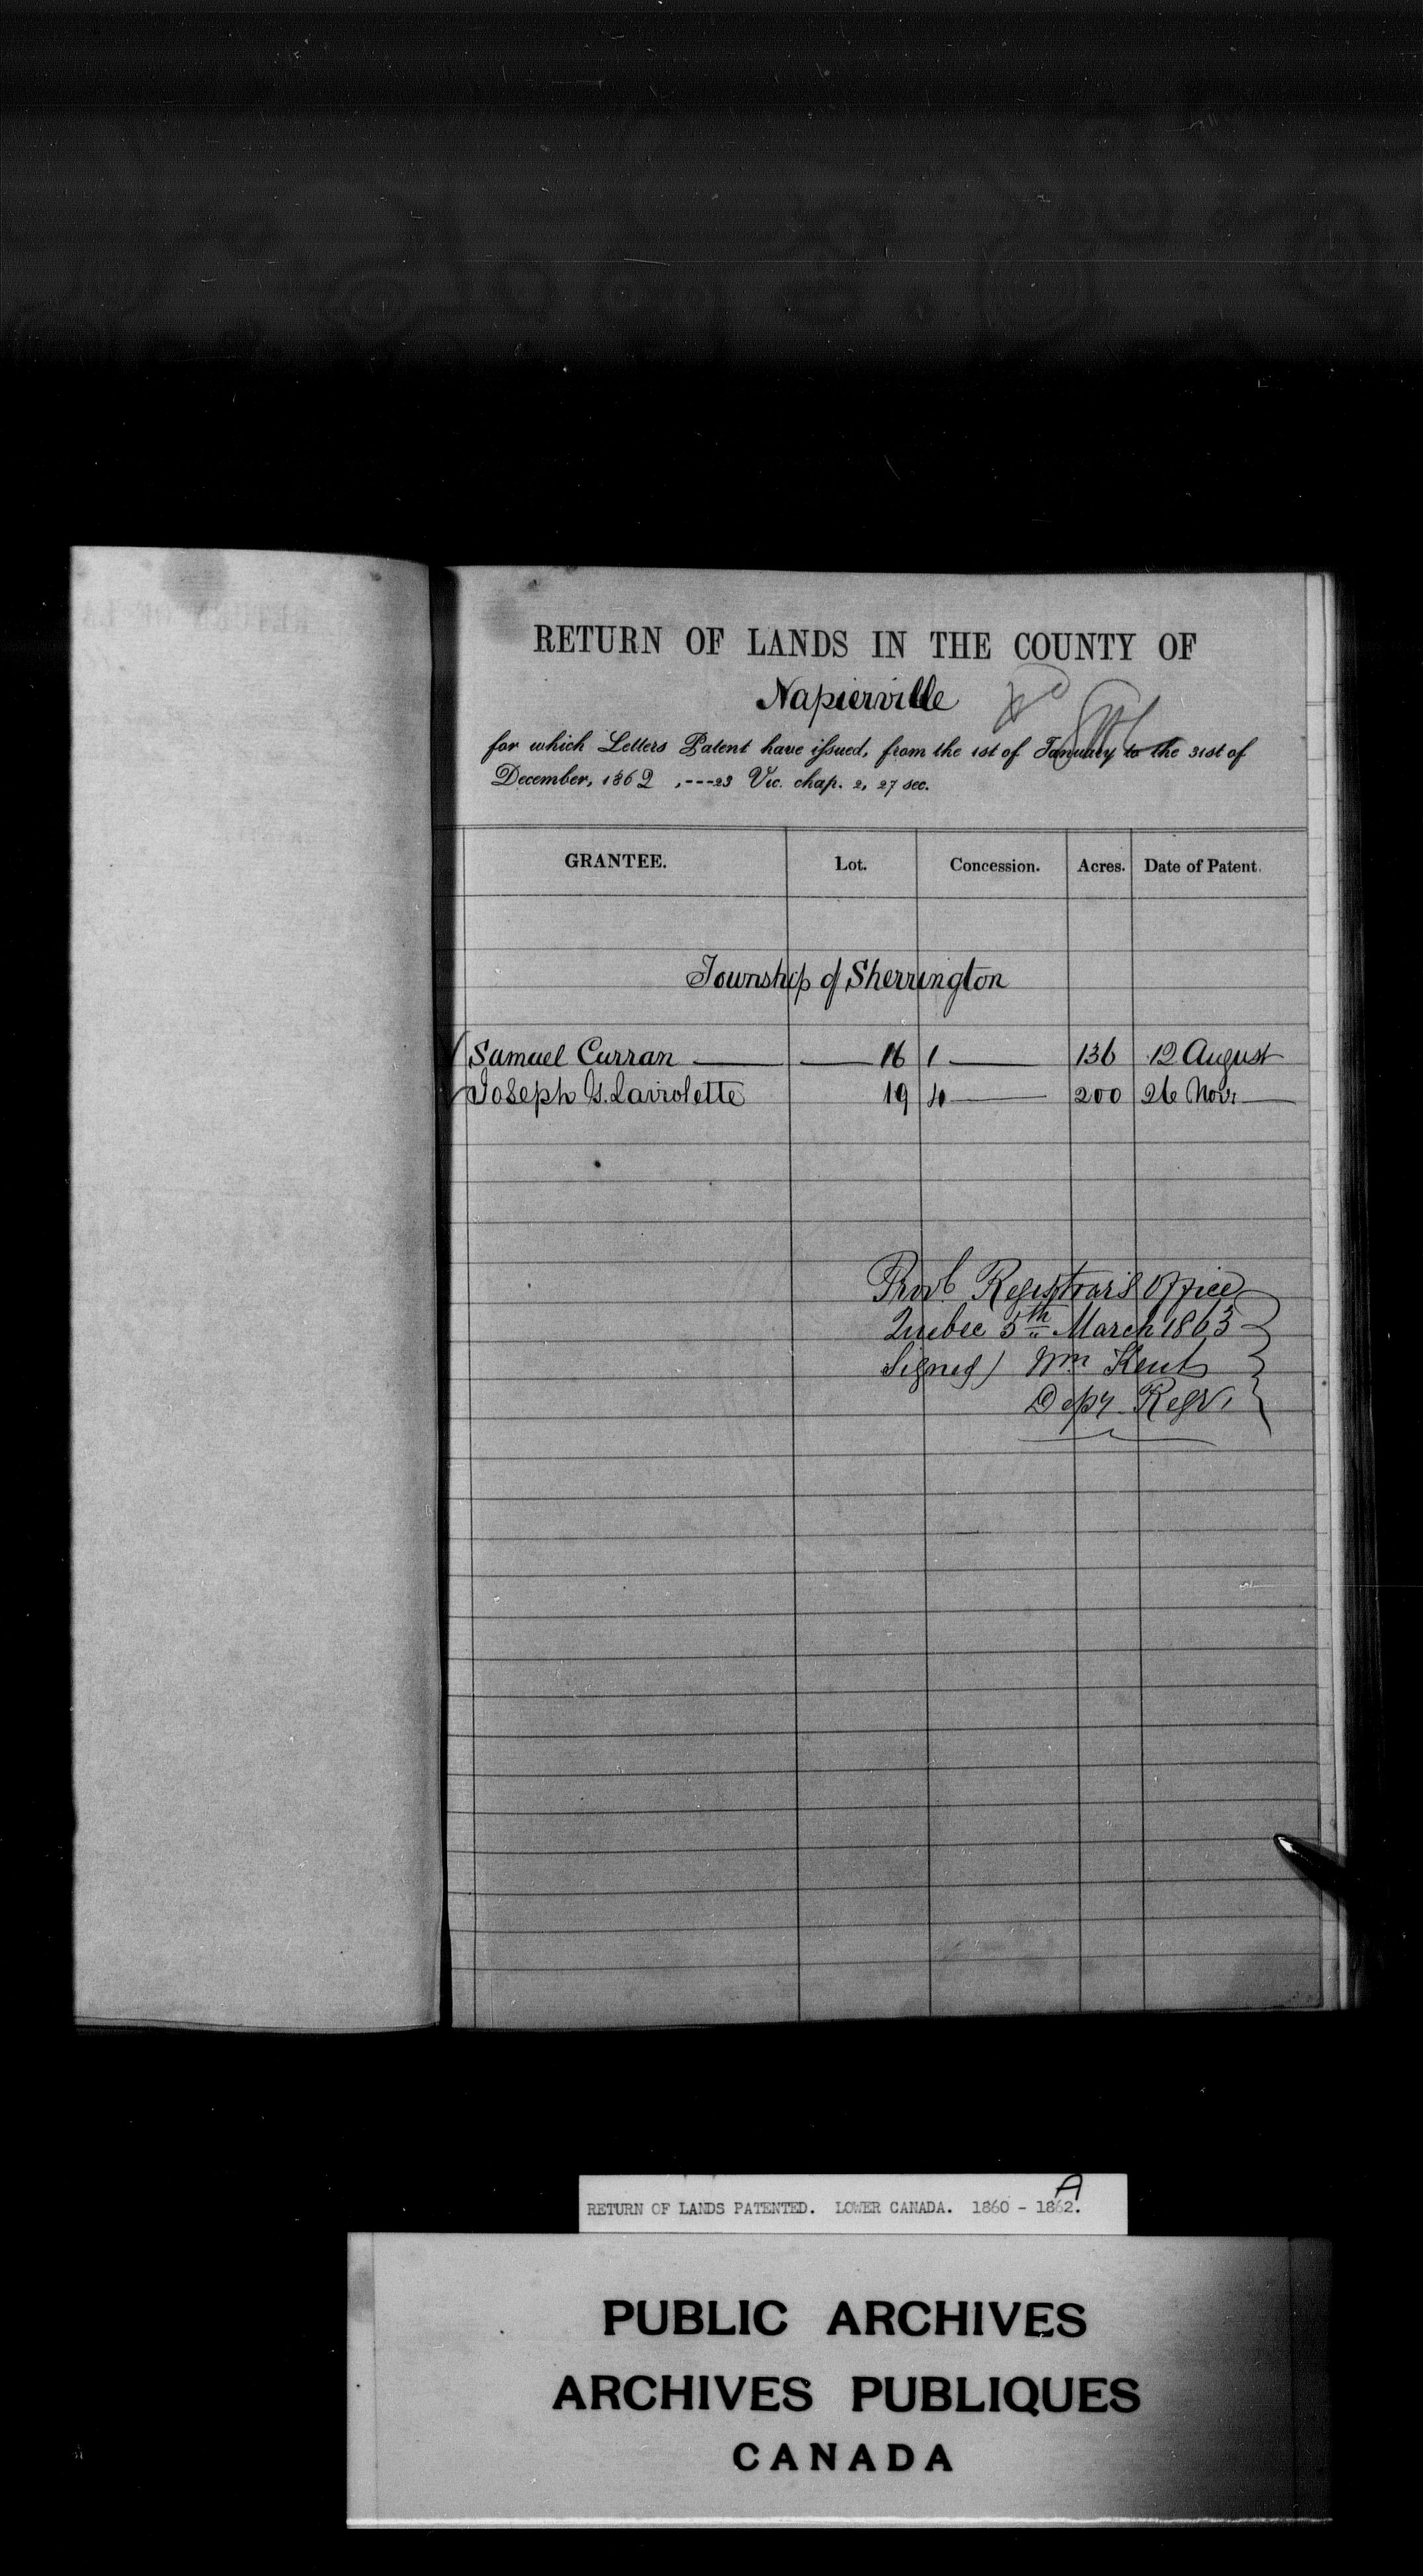 RETURN OF LANDS IN THE COUNTY OF
Napierville
for which Letters Patent have issued, from the 1st of January to the 31st of
December, 1862 ,---23 Vic. chap. 2, 27 sec.
GRANTEE. Lot. Concession. Acres. Date of Patent.
Township of Sherrington
Samuel Curran 16 1 136 12 August
Joseph G. Laviolette 19 4 200 26 Novr
Provl. Registrar's Office
Quebec 5th March 1863
Signed) Wm Kent
Depy Regr.
RETURN OF LANDS PATENTED. LOWER CANADA. 1860 - 1862. A
PUBLIC ARCHIVES
ARCHIVES PUBLIQUES
CANADA